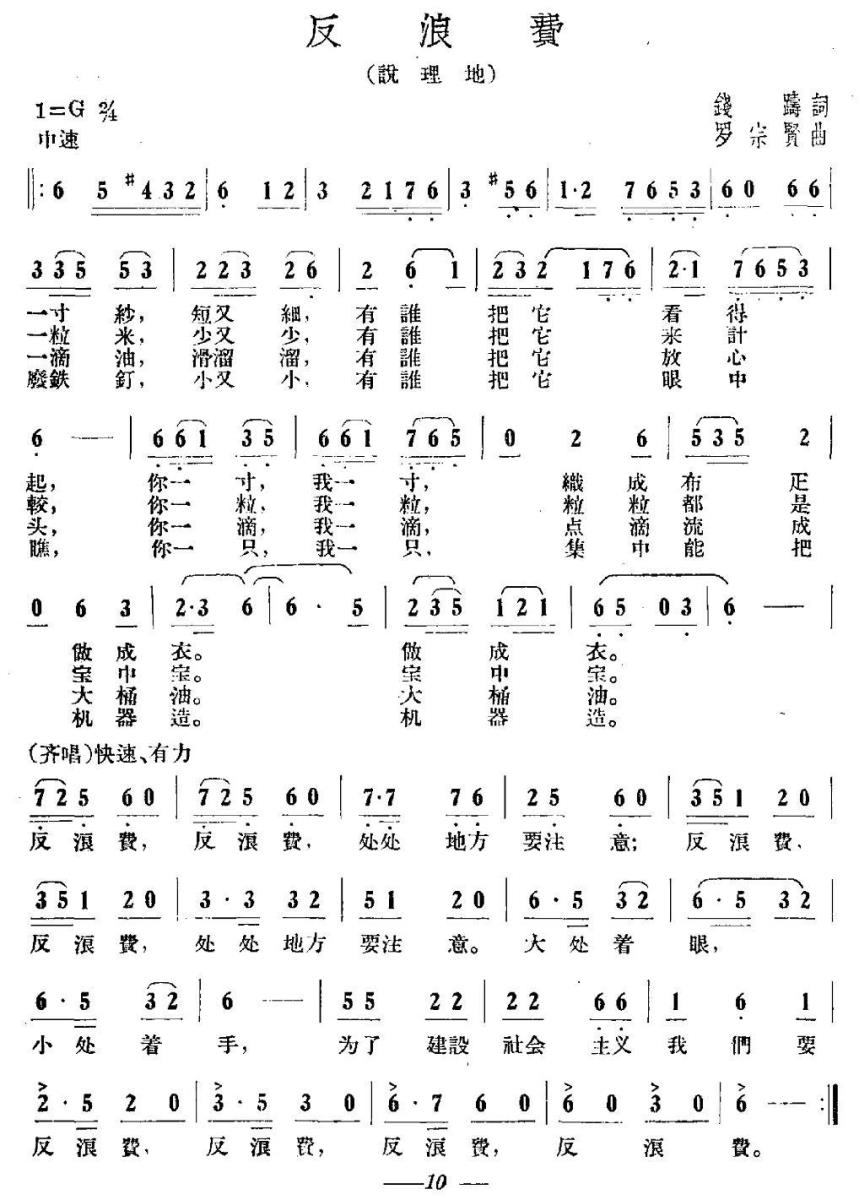 反浪費
(說理地)
1=G 2/4
錢 疇 詞
中速
罗 宗 賢 曲
‖: 6 5 #4 3 2 | 6 1 2 | 3 2 1 7 6 | 3 #5 6 | 1·2 7 6 5 3 | 6 0 6 6 |
3 3 5 5 3 | 2 2 3 2 6 | 2 6 1 | 2 3 2 1 7 6 | 2·1 7 6 5 3 |
一寸 紗, 短又 細, 有誰 把它 看得
一粒 米, 少又 少, 有誰 把它 来計
一滴 油, 滑溜 溜, 有誰 把它 放心
廢鉄 釘, 小又 小, 有誰 把它 眼中
6 — | 6 6 1 3 5 | 6 6 1 7 6 5 | 0 2 6 | 5 3 5 2 |
起, 你一 寸, 我一 寸, 織 成 布 疋
較, 你一 粒, 我一 粒, 粒 粒 都 是
头, 你一 滴, 我一 滴, 点 滴 流 成
瞧, 你一 只, 我一 只, 集 中 能 把
0 6 3 | 2·3 6 | 6 · 5 | 2 3 5 1 2 1 | 6 5 0 3 | 6 — |
做 成 衣。 做 成 衣。
宝 中 宝。 宝 中 宝。
大 桶 油。 大 桶 油。
机 器 造。 机 器 造。
(齐唱)快速、有力
7 2 5 6 0 | 7 2 5 6 0 | 7·7 7 6 | 2 5 6 0 | 3 5 1 2 0 |
反 浪 費, 反 浪 費, 处处 地方 要注 意; 反 浪 費,
3 5 1 2 0 | 3 · 3 3 2 | 5 1 2 0 | 6 · 5 3 2 | 6 · 5 3 2 |
反 浪 費, 处 处 地方 要注 意。 大 处 着 眼,
6 · 5 3 2 | 6 — | 5 5 2 2 | 2 2 6 6 | 1 6 1 |
小 处 着 手, 为了 建設 社会 主义 我 們 要
2 · 5 2 0 | 3 · 5 3 0 | 6 · 7 6 0 | 6 0 3 0 | 6 — :‖
反 浪 費, 反 浪 費, 反 浪 費, 反 浪 費。
—10—